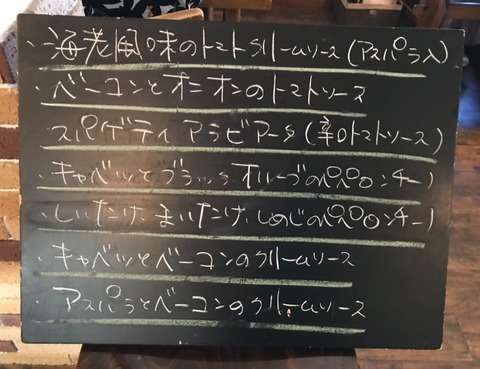 ・海老風味のトマトクリームソース(アスパラ入)
・ベーコンとオニオンのトマトソース
・スパゲティアラビアータ(辛口トマトソース)
・キャベツとブラックオリーブのペペロンチーノ
・しいたけ、まいたけ、しめじのペペロンチーノ
・キャベツとベーコンのクリームソース
・アスパラとベーコンのクリームソース